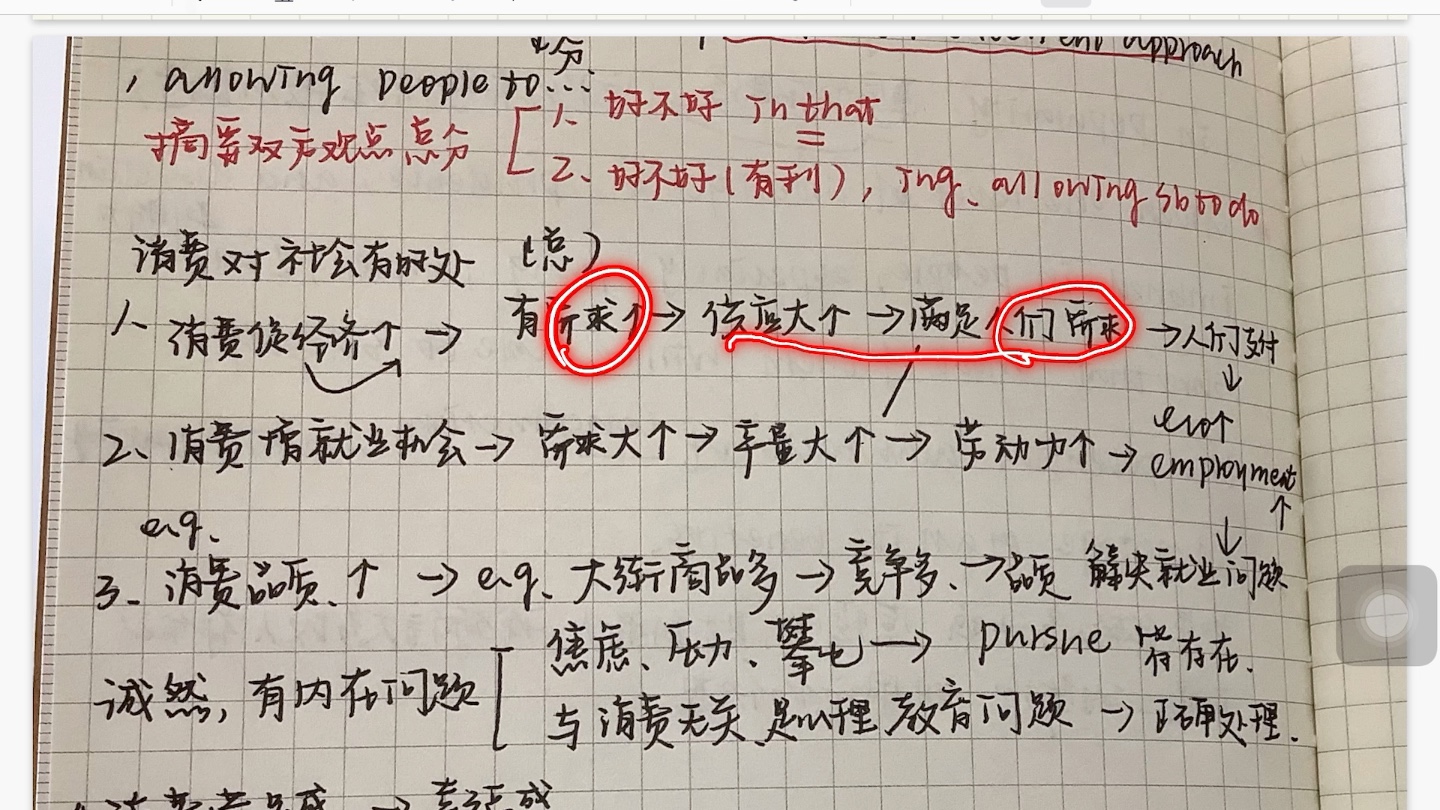 approach
, allowing people to...
摘要双方观点总分
1、好不好 in that
2、好不好(有利), ing、allowing sb to do
消费对社会有好处 (总)
1、消费促经济↑ → 有需求↑ → 供应大↑ → 满足人们需求 → 人们支付
↓
2、消费增就业机会 → 需求大↑ → 产量大↑ → 劳动力↑ → employment
eco↑
↑
↓
e.g.
3、消费品质、↑ → e.g. 大街商品多 → 竞争多、→ 品质 解决就业问题
诚然, 有内在问题
焦虑、压力、攀比 → pursue 皆存在.
与消费无关、是心理、教育问题 → 正确处理.